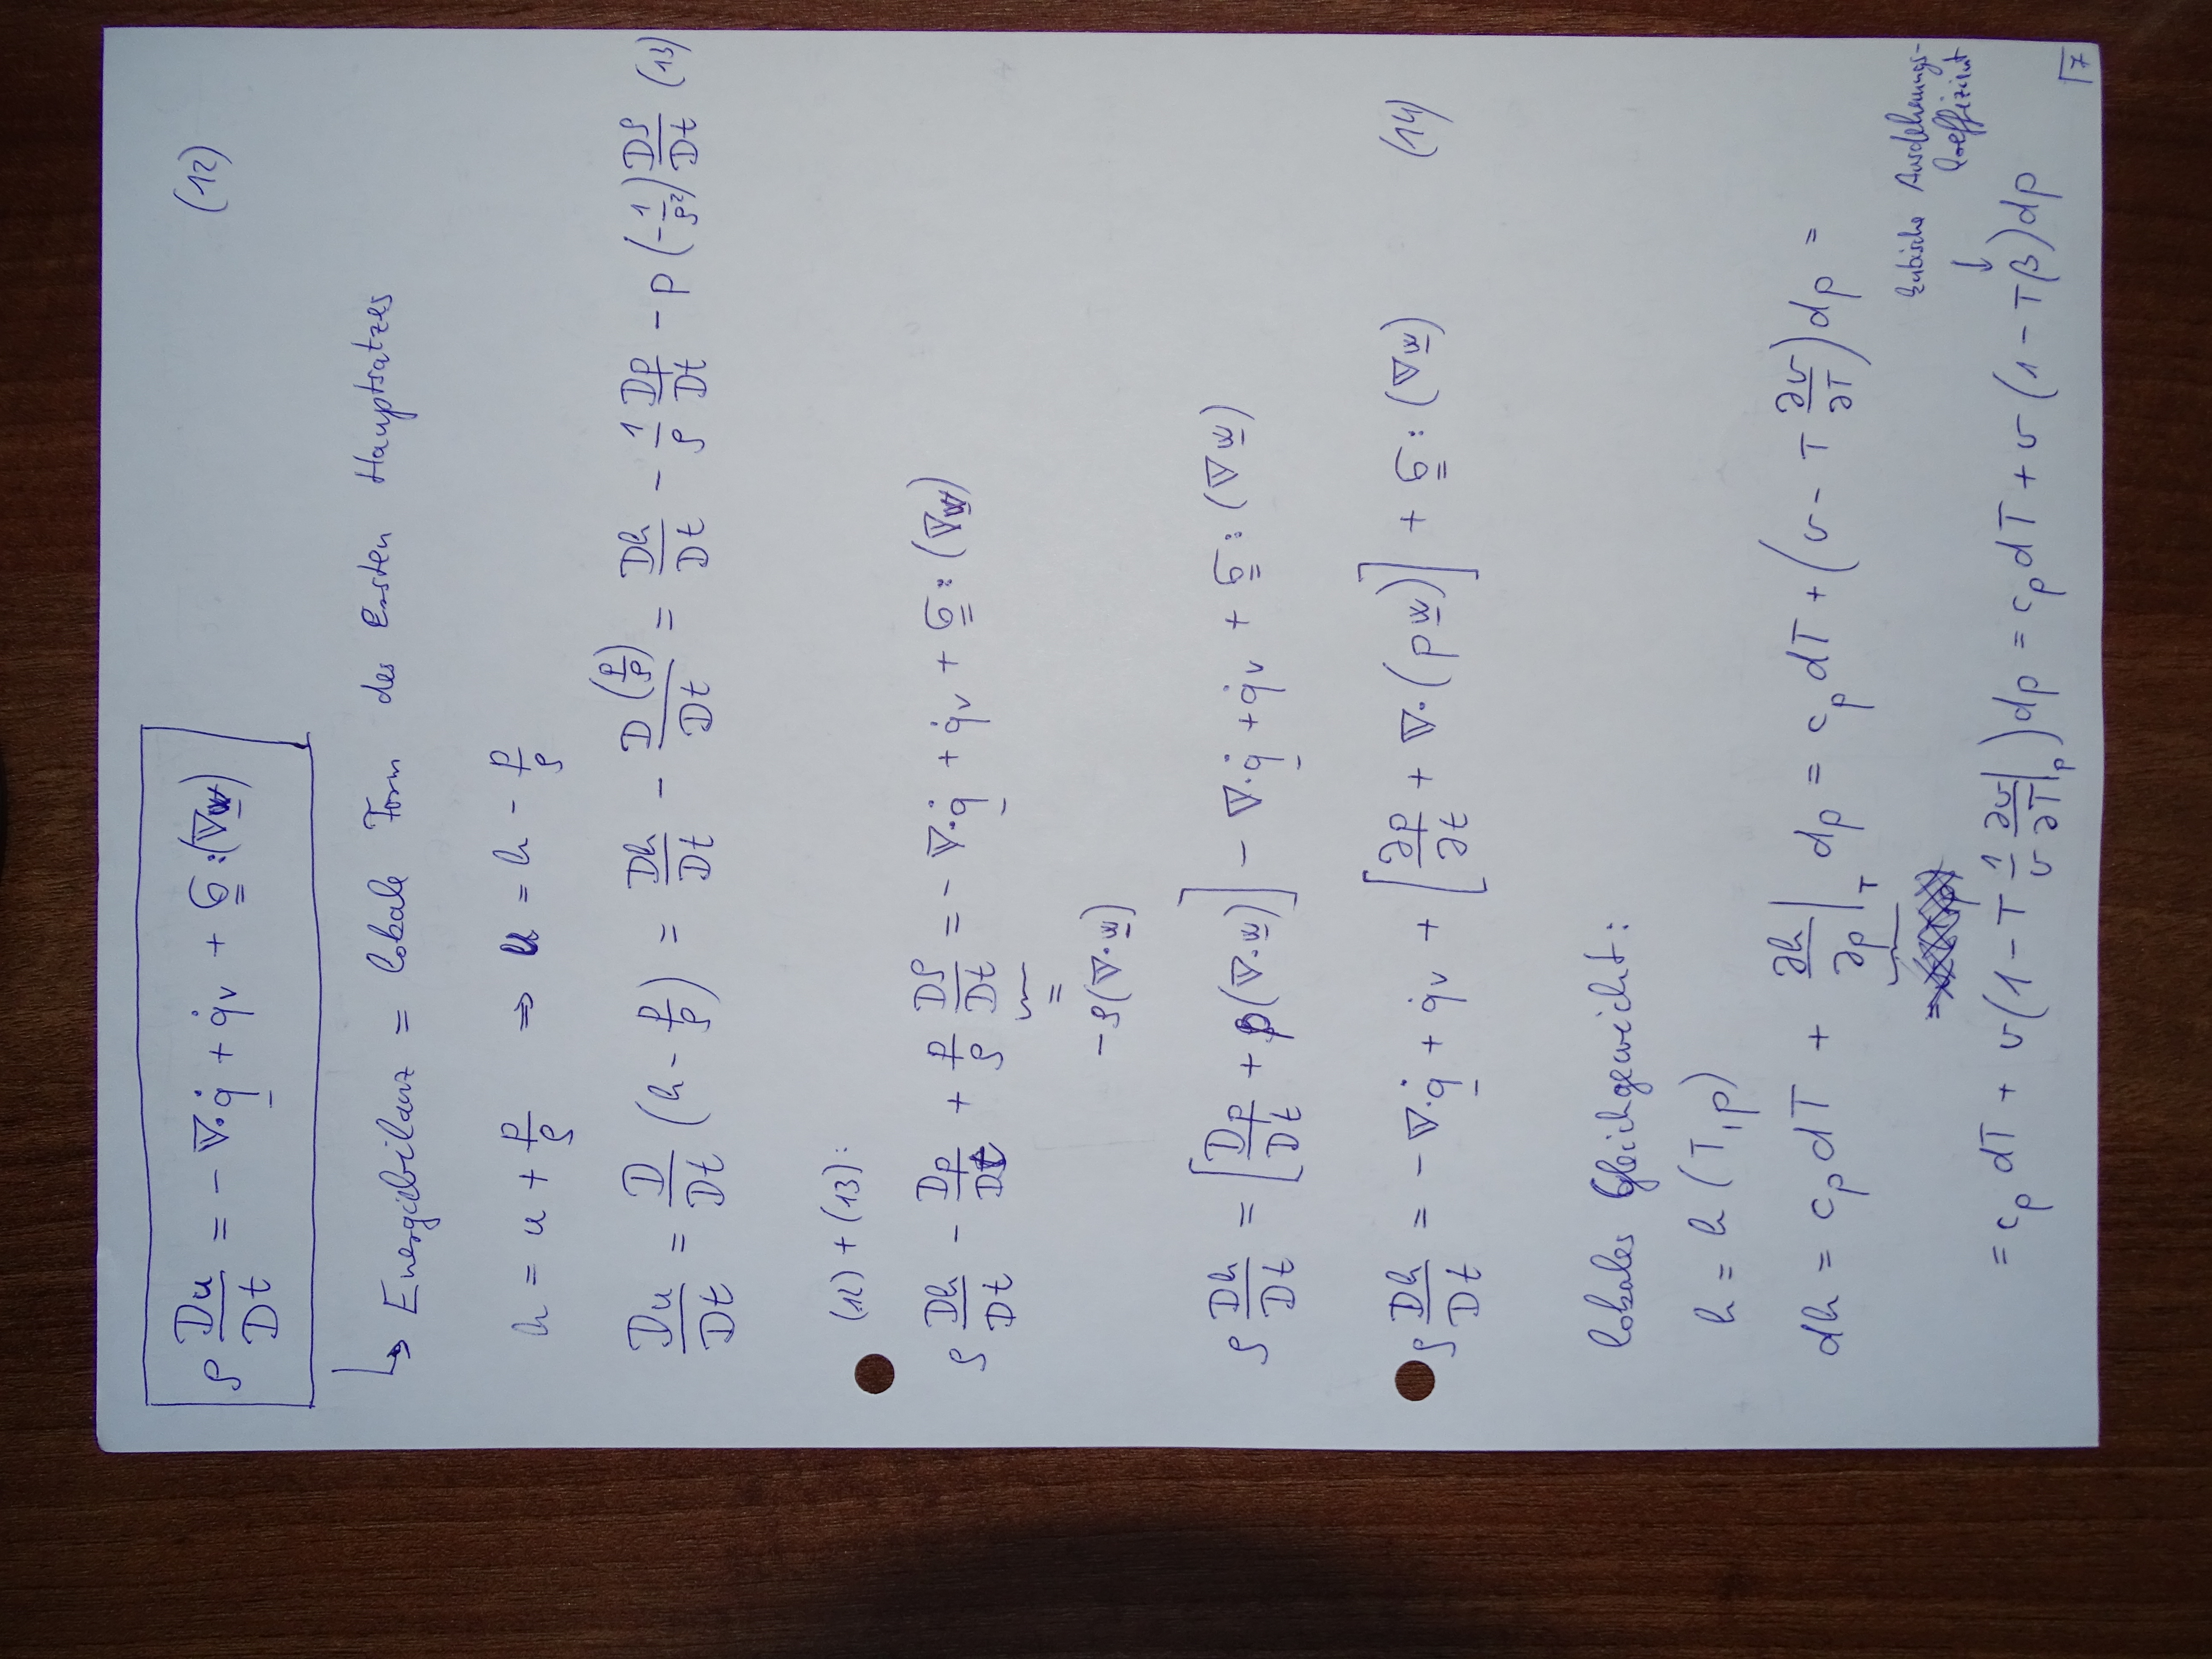 ρ Du/Dt = - ∇·q̇ + q̇ᵥ + σ:(∇w) (12)
↳ Energiebilanz = lokale Form des Ersten Hauptsatzes
h = u + p/ρ ⇒ u = h - p/ρ
Du/Dt = D/Dt (h - p/ρ) = Dh/Dt - D(p/ρ)/Dt = Dh/Dt - 1/ρ Dp/Dt - p (-1/ρ²) Dρ/Dt (13)
(12) + (13):
ρ Dh/Dt - Dp/Dt + p/ρ Dρ/Dt = - ∇·q̇ + q̇ᵥ + σ:(∇w)
=
-ρ(∇·w)
ρ Dh/Dt = [Dp/Dt + p(∇·w)] - ∇·q̇ + q̇ᵥ + σ:(∇w)
ρ Dh/Dt = - ∇·q̇ + q̇ᵥ + [∂p/∂t + ∇·(pw)] + σ:(∇w) (14)
lokales Gleichgewicht:
h = h (T, p)
dh = c_p dT + ∂h/∂p|_T dp = c_p dT + (v - T ∂v/∂T) dp =
kubische Ausdehnungs-
koeffizient
↓
= c_p dT + v(1 - T 1/v ∂v/∂T|_p) dp = c_p dT + v (1 - Tβ) dp
7